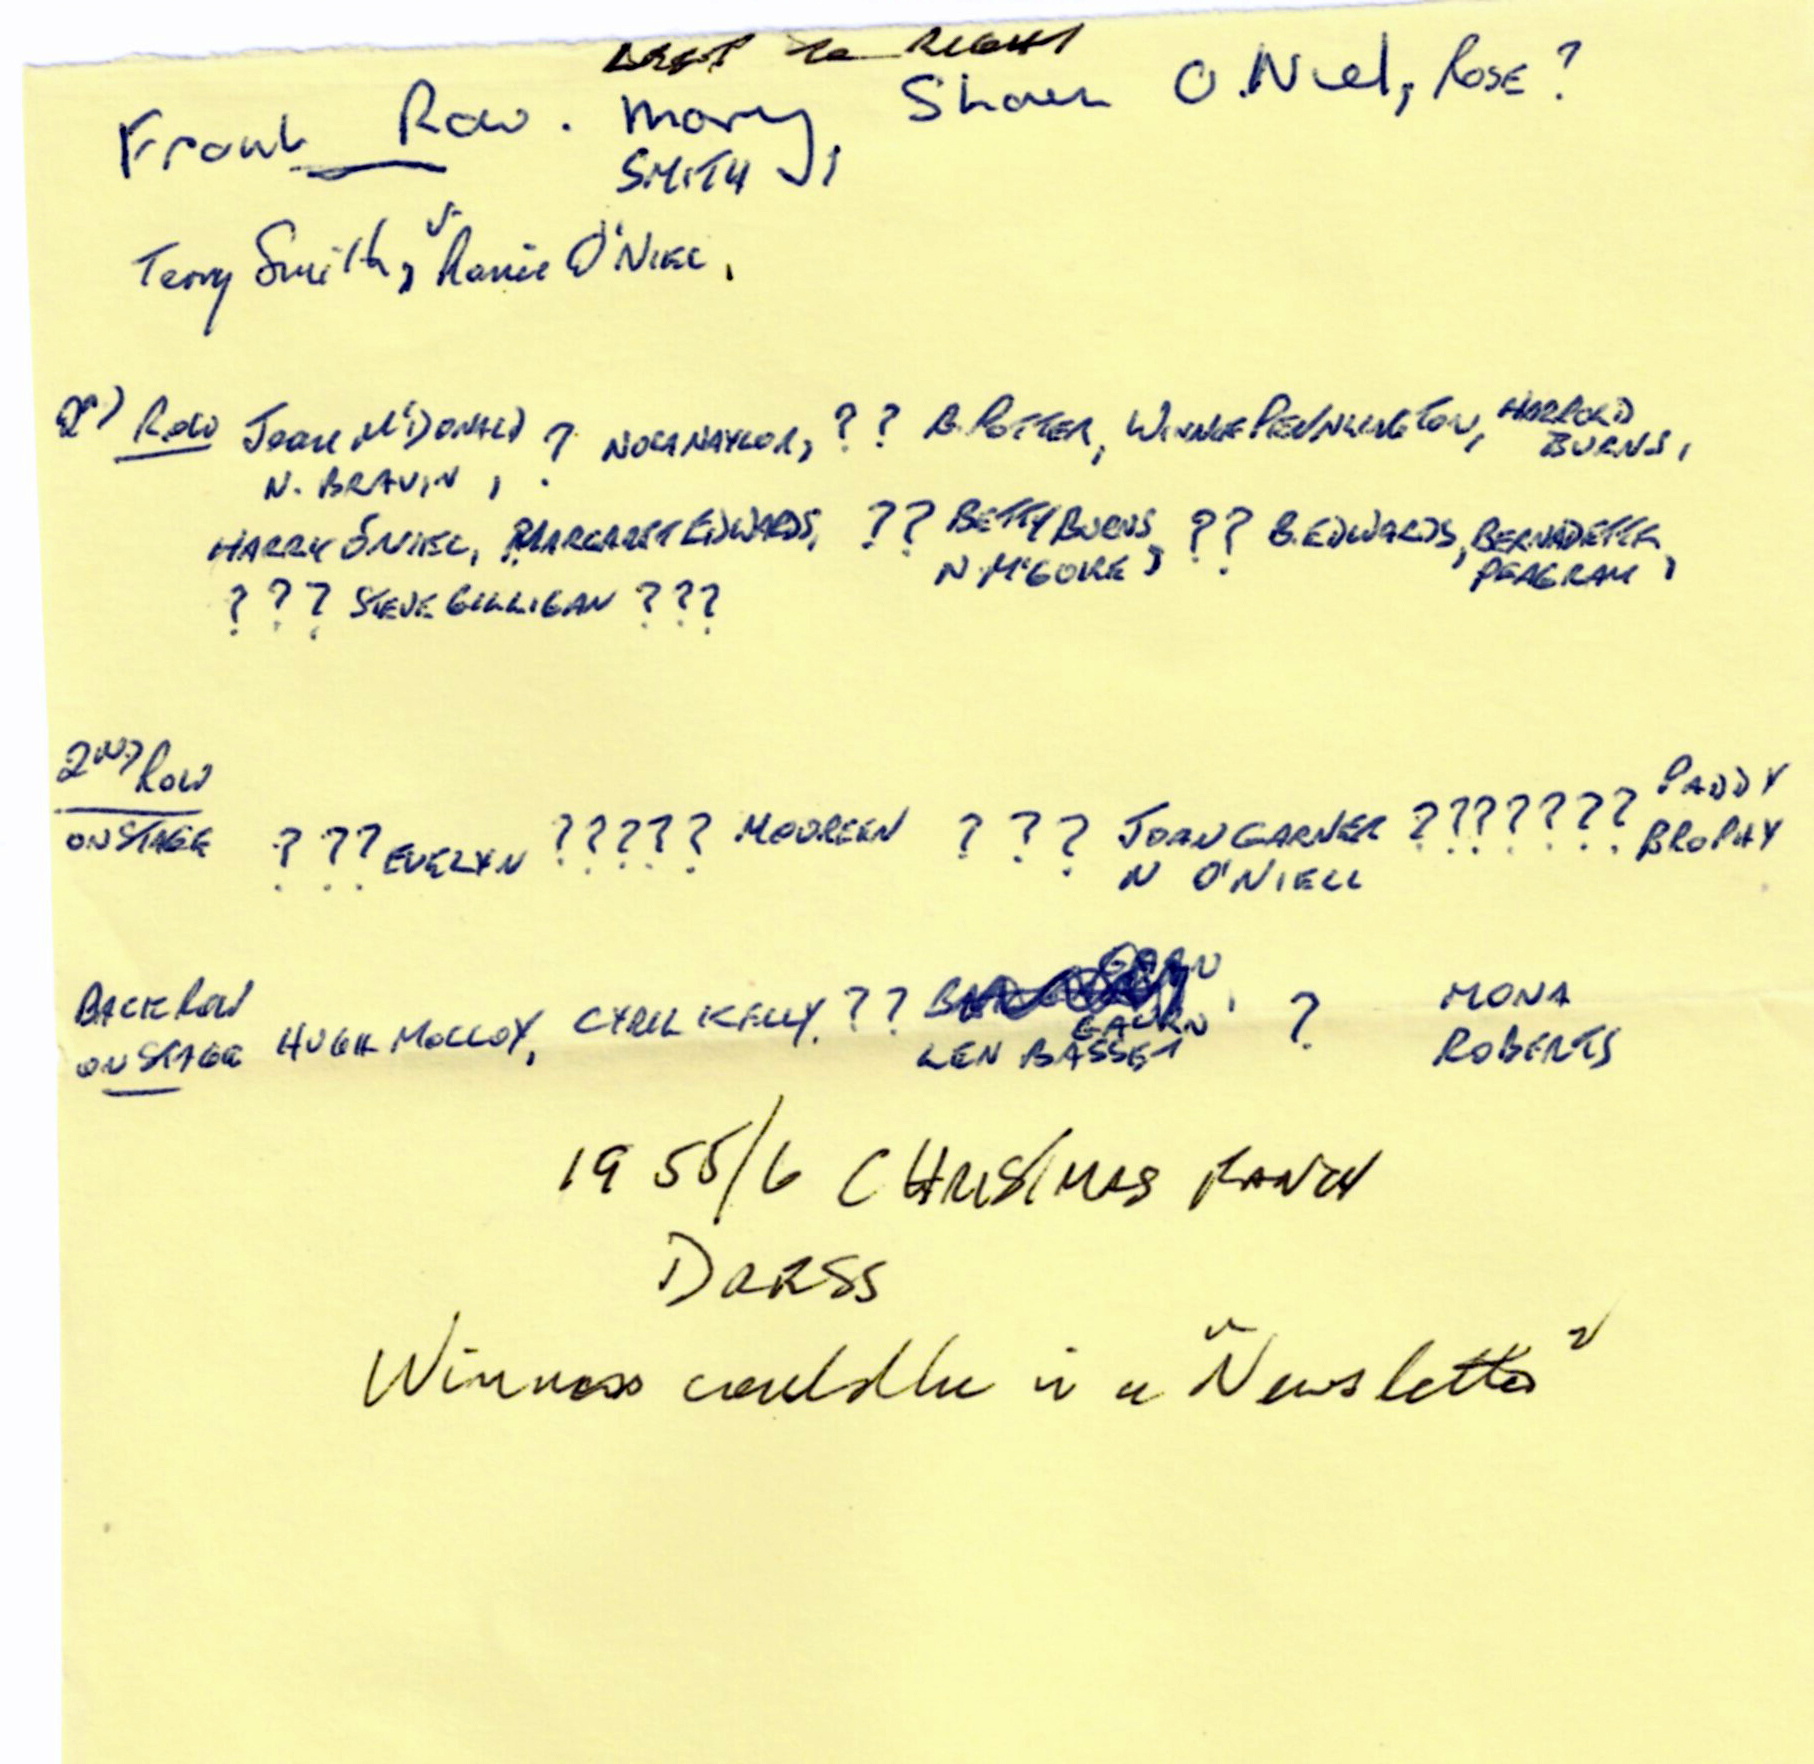 LEFT TO RIGHT
Front Row. Mary, Shaun O.Niel, ROSE?
SMITH
Terry Smith, Ronnie O'NIEL,
2ND ROW JOAN McDONALD ? NORA NAYLOR, ?? B. POTTER, WINNIE PENNLINGTON, HARROLD
N. BRAVIN, BURNS,
HARRY O'NIEL, MARGARET EDWARDS, ?? BETTY BURNS, ?? B. EDWARDS, BERNADETTE
N. McGOIRE, PEAGRAM,
??? STEVE GILLIGAN ???
2ND ROW PADDY
ON STAGE ??? EVELYN ????? MOUREEN ??? JOAN GARNER ??????? BROPHY
N O'NIELL
BACK ROW MONA
ON STAGE HUGH MOLLOY, CYRIL KELLY, ?? LEN BASSET ? ROBERTS
1955/6 CHRISTMAS RANCH
DRESS
Winners could be in a "Newsletter"